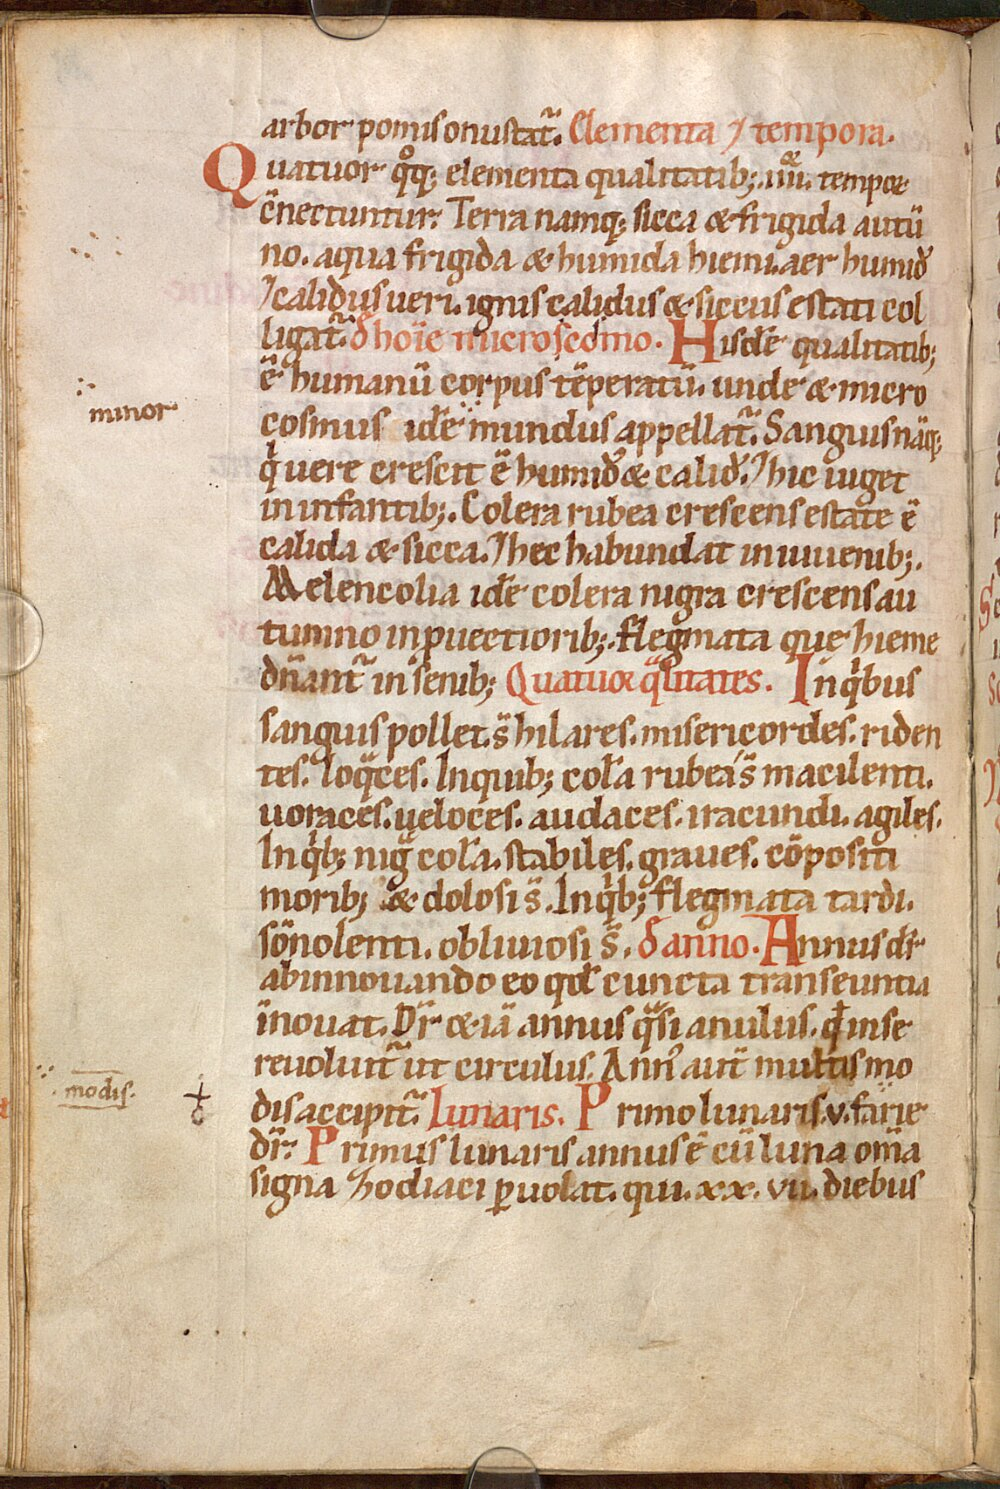 arbor pomis onustat᷑. Elementa ⁊ tempora.
Quatuor qͦq; elementa qualitatib; .iiii. tempoꝝ
c̄nectuntur. Terra namq; sicca & frigida autū
no. aqua frigida & humida hiemi. aer humid᷒
⁊ calidus ueri. ignis calidus & siccus estati col
ligat᷑. d̄ hoīe microscosmo. Hisdē qualitatib;
ē humanū corpus tēperatū. unde & micro
minor
cosmus idē mundus appellat᷑. Sanguis nāq;
qͥ uere crescit ē humid᷒ & calid᷒. ⁊ hic uiget
in infantib;. Colera rubea crescens estate ē
calida & sicca. ⁊ hec habundat in iuuenib;.
Melencolia idē colera nigra crescens au
tumno in puectiorib;. flegmata que hieme
dn̄ant᷑ in senib; Quatuor qͣlitates. In qͥbus
sanguis pollet. s̄ hilares. misericordes. riden
tes. loqͣces. In quib; col̄a rubea s̄ macilenti.
uoraces. ueloces. audaces. iracundi. agiles.
In qͥb; nigͣ col̄a. stabiles. graues. cōpositi
morib; & dolosi s̄. In qͥb; flegmata tardi.
sōnolenti. obliuiosi s̄. d̄ anno. Annus dr̄
ab innouando eo qd̄ cuncta transeuntia
īnouat. Dr̄ & iā annus qͣsi anulus. qd̄ in se
reuoluit᷑ ut circulus. Ann᷒ aut̄ multis mo
modis.
dis accipit᷑. Lunaris. Primo lunaris .v. farie
dr̄. Primus lunaris annus ē cū luna om̄a
signa zodiaci ꝑuolat. qui .xx. vii. diebus